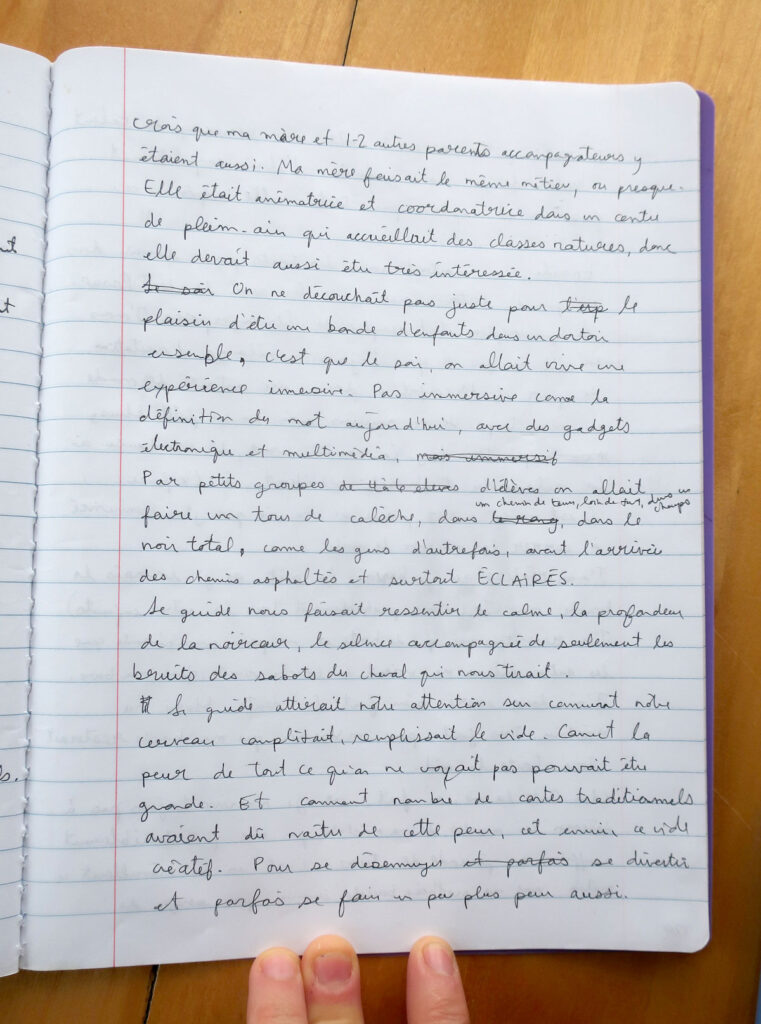 crois que ma mère et 1-2 autres parents accompagnateurs y
étaient aussi. Ma mère faisait le même métier, ou presque.
Elle était animatrice et coordonatrice dans un centre
de plein-air qui accueillait des classes natures, donc
elle devait aussi être très intéressée.
Le soir On ne découchait pas juste pour l'exp le
plaisir d'être une bande d'enfants dans un dortoir
ensemble, c'est que le soir, on allait vivre une
expérience immersive. Pas immersive comme la
définition du mot aujourd'hui, avec des gadgets
électronique et multimédia, mais immersif
Par petits groupes de 4 à 6 élèves d'élèves on allait
un chemin de terre, loin de tout, dans un
champs
faire un tour de calèche, dans le rang, dans le
noir total, comme les gens d'autrefois, avant l'arrivée
des chemins asphaltés et surtout ÉCLAIRÉS.
Le guide nous faisait ressentir le calme, la profondeur
de la noirceur, le silence accompagnée de seulement les
bruits des sabots du cheval qui nous tirait.
Le guide attirait notre attention sur comment notre
cerveau complétait, remplissait le vide. Comment la
peur de tout ce qu'on ne voyait pas pouvait être
grande. Et comment nombre de contes traditionnels
avaient dû naître de cette peur, cet ennui, ce vide
créatif. Pour se désennuyer et parfois se divertir
et parfois se faire un peu plus peur aussi.